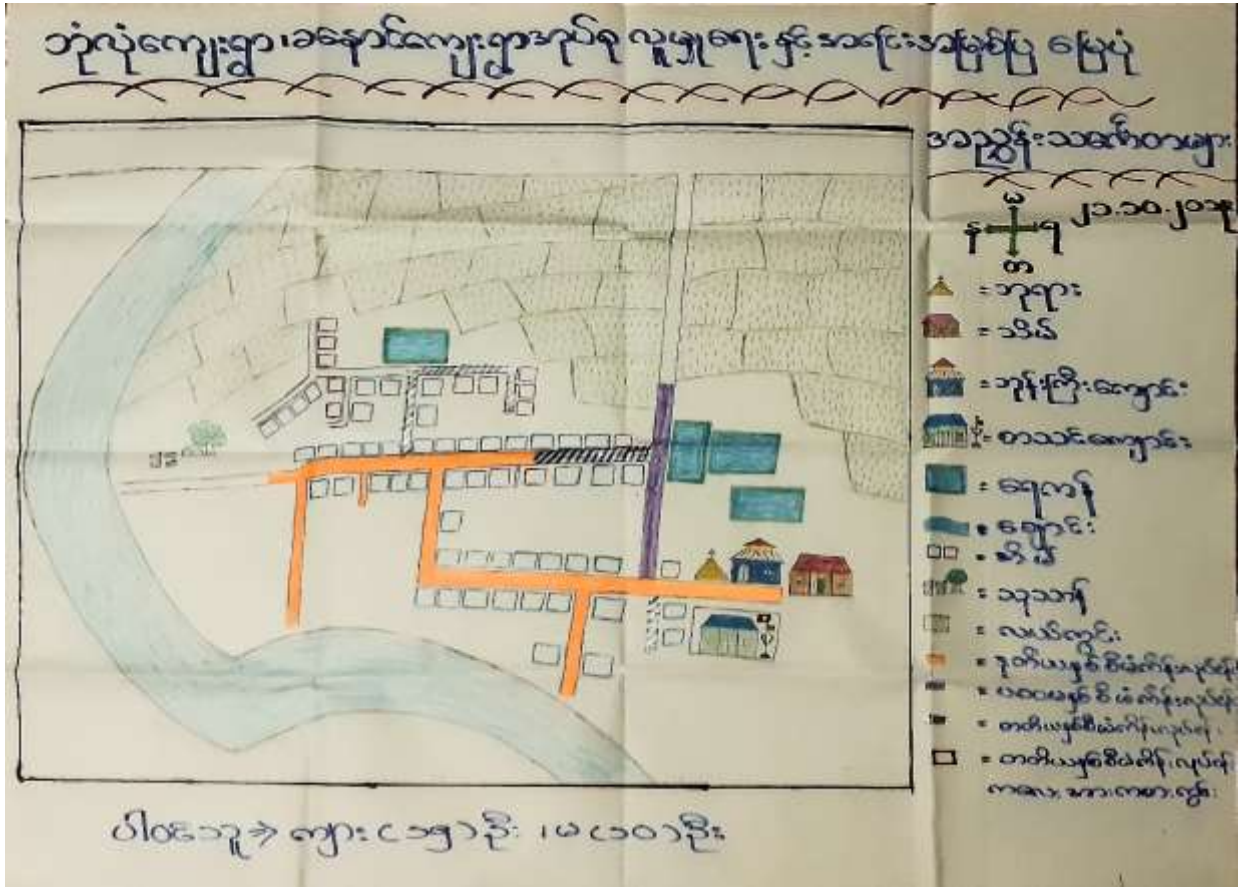 ဘုံလုံကျေးရွာ၊ခနောင်ကျေးရွာအုပ်စု လူမှုရေးနှင့်အရင်းအမြစ်ပြ မြေပုံ
အညွှန်းသင်္ကေတများ
၂၁.၁၀.၂၀၁၅
မ
န ရ
တ
= ဘုရား
= သိမ်
= ဘုန်းကြီးကျောင်း
= စာသင်ကျောင်း
= ရေကန်
= ချောင်း
= အိမ်
= သုသာန်
= လယ်ကွင်း
= ဒုတိယနှစ်စီမံကိန်းလုပ်ရန်
= ပထမနှစ်စီမံကိန်းလုပ်ရန်
= တတိယနှစ်စီမံကိန်းလုပ်ရန်
= တတိယနှစ်စီမံကိန်းလုပ်ရန်
ကလေးအားကစားကွင်း
ပါဝင်သူ⇒ ကျား(၁၅)ဦး၊မ(၁၀)ဦး